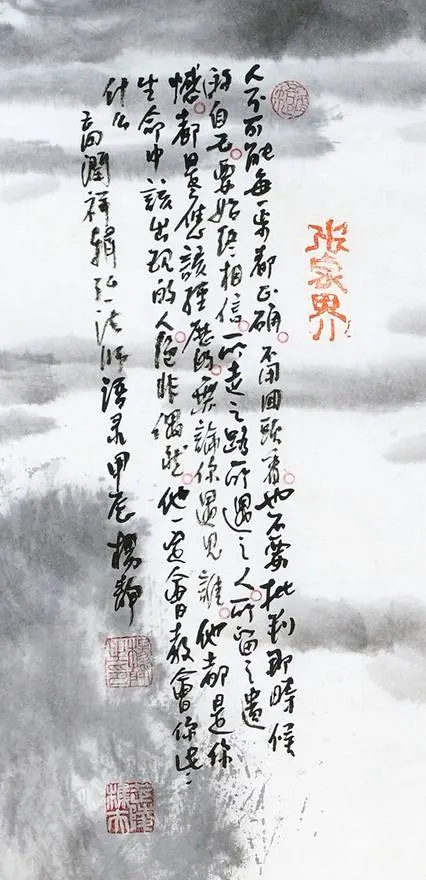 张家界
人不可能每步都正确。不用回頭看。也不要批判那時候
的自己。要始終相信。所走之路所遇之人。所留之遺
憾。都是您該經歷的。無論你遇見誰。他都是你
生命中該出現的人。絕非偶然。他一定會教會你些
什么
高潤祥輯弘一法師語录甲辰楊靜